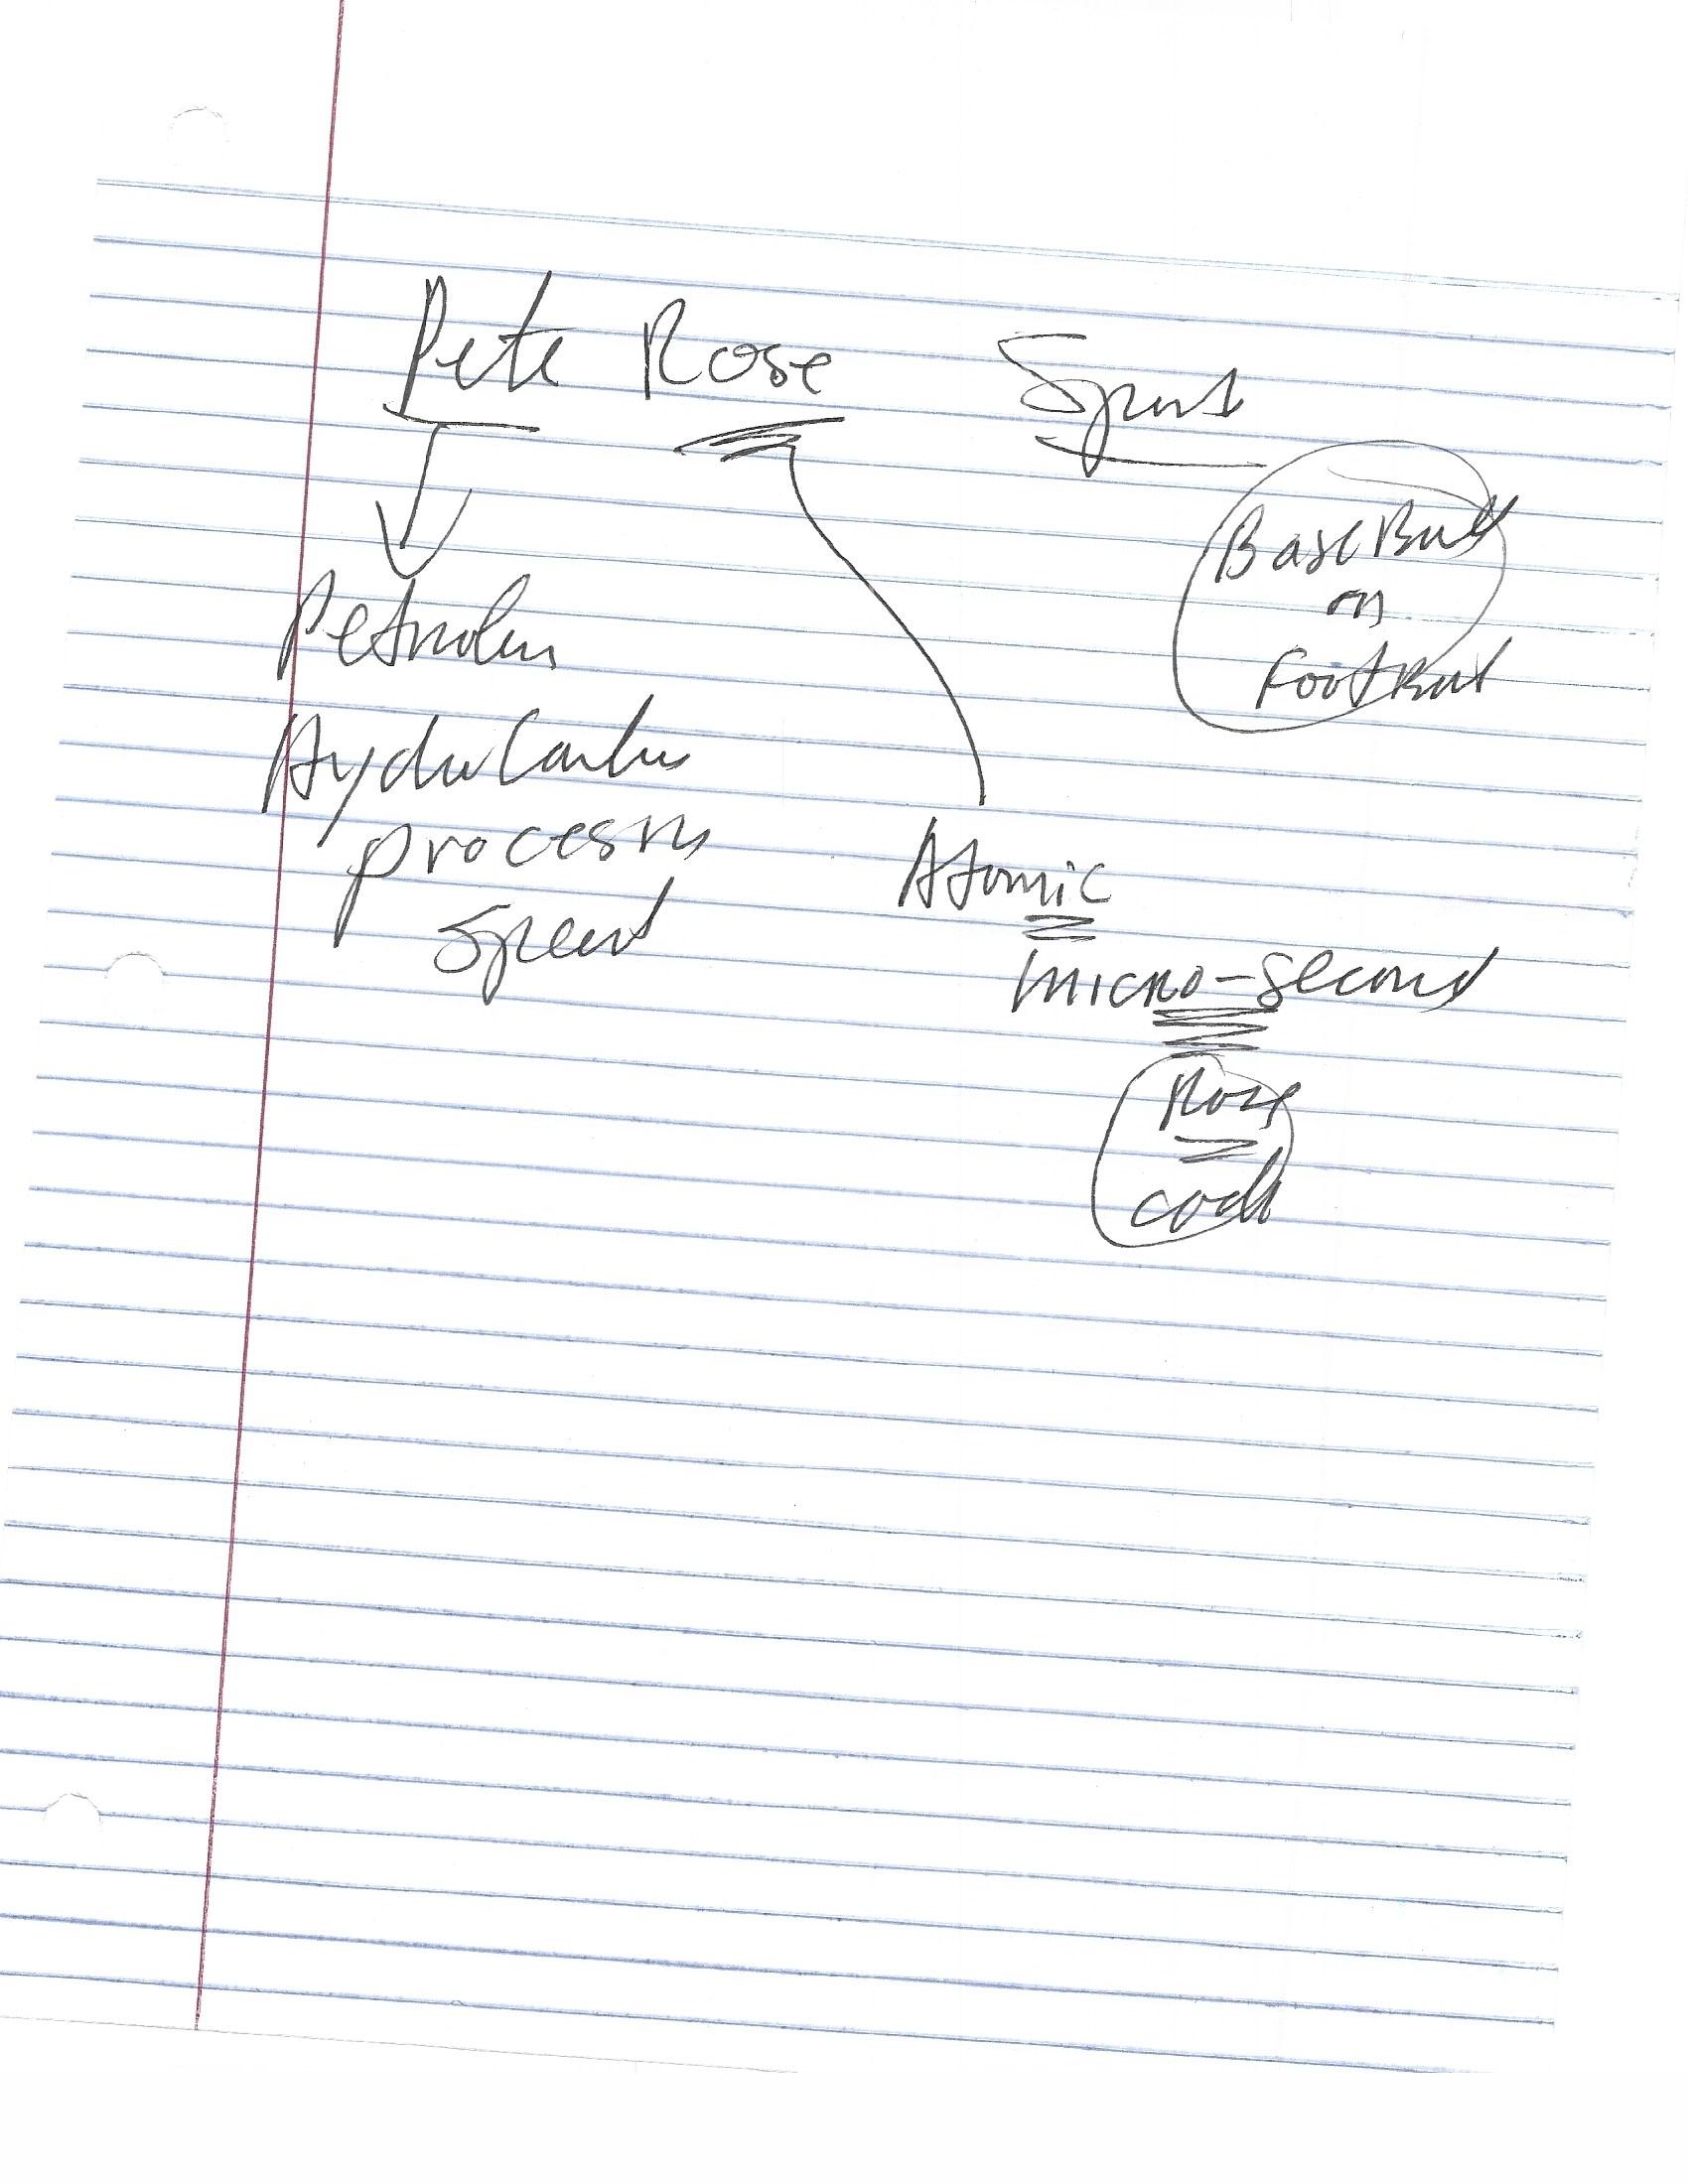 Pete Rose Sport
BaseBall
or
FootBall
Petroleum
HydroCarbon
process
Speed
Atomic
micro-second
Rose
code